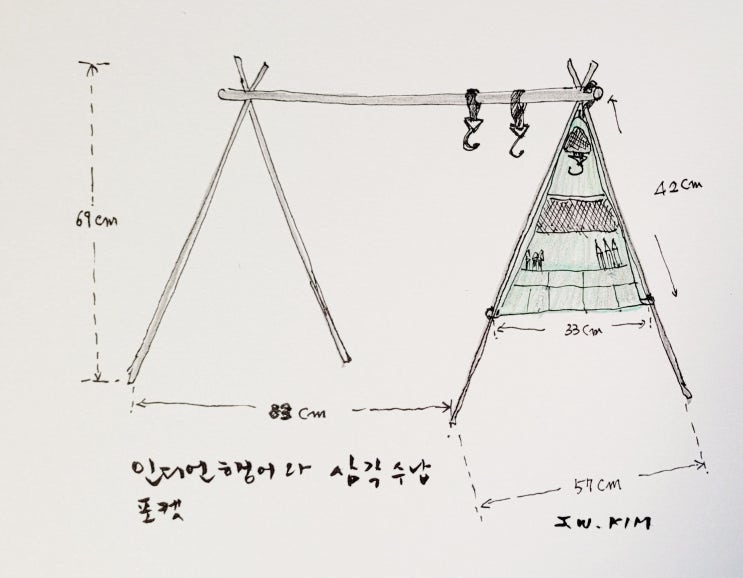 69cm
42cm
33cm
83 cm
57cm
인디언행어와 삼각수납
포켓
JW. KIM